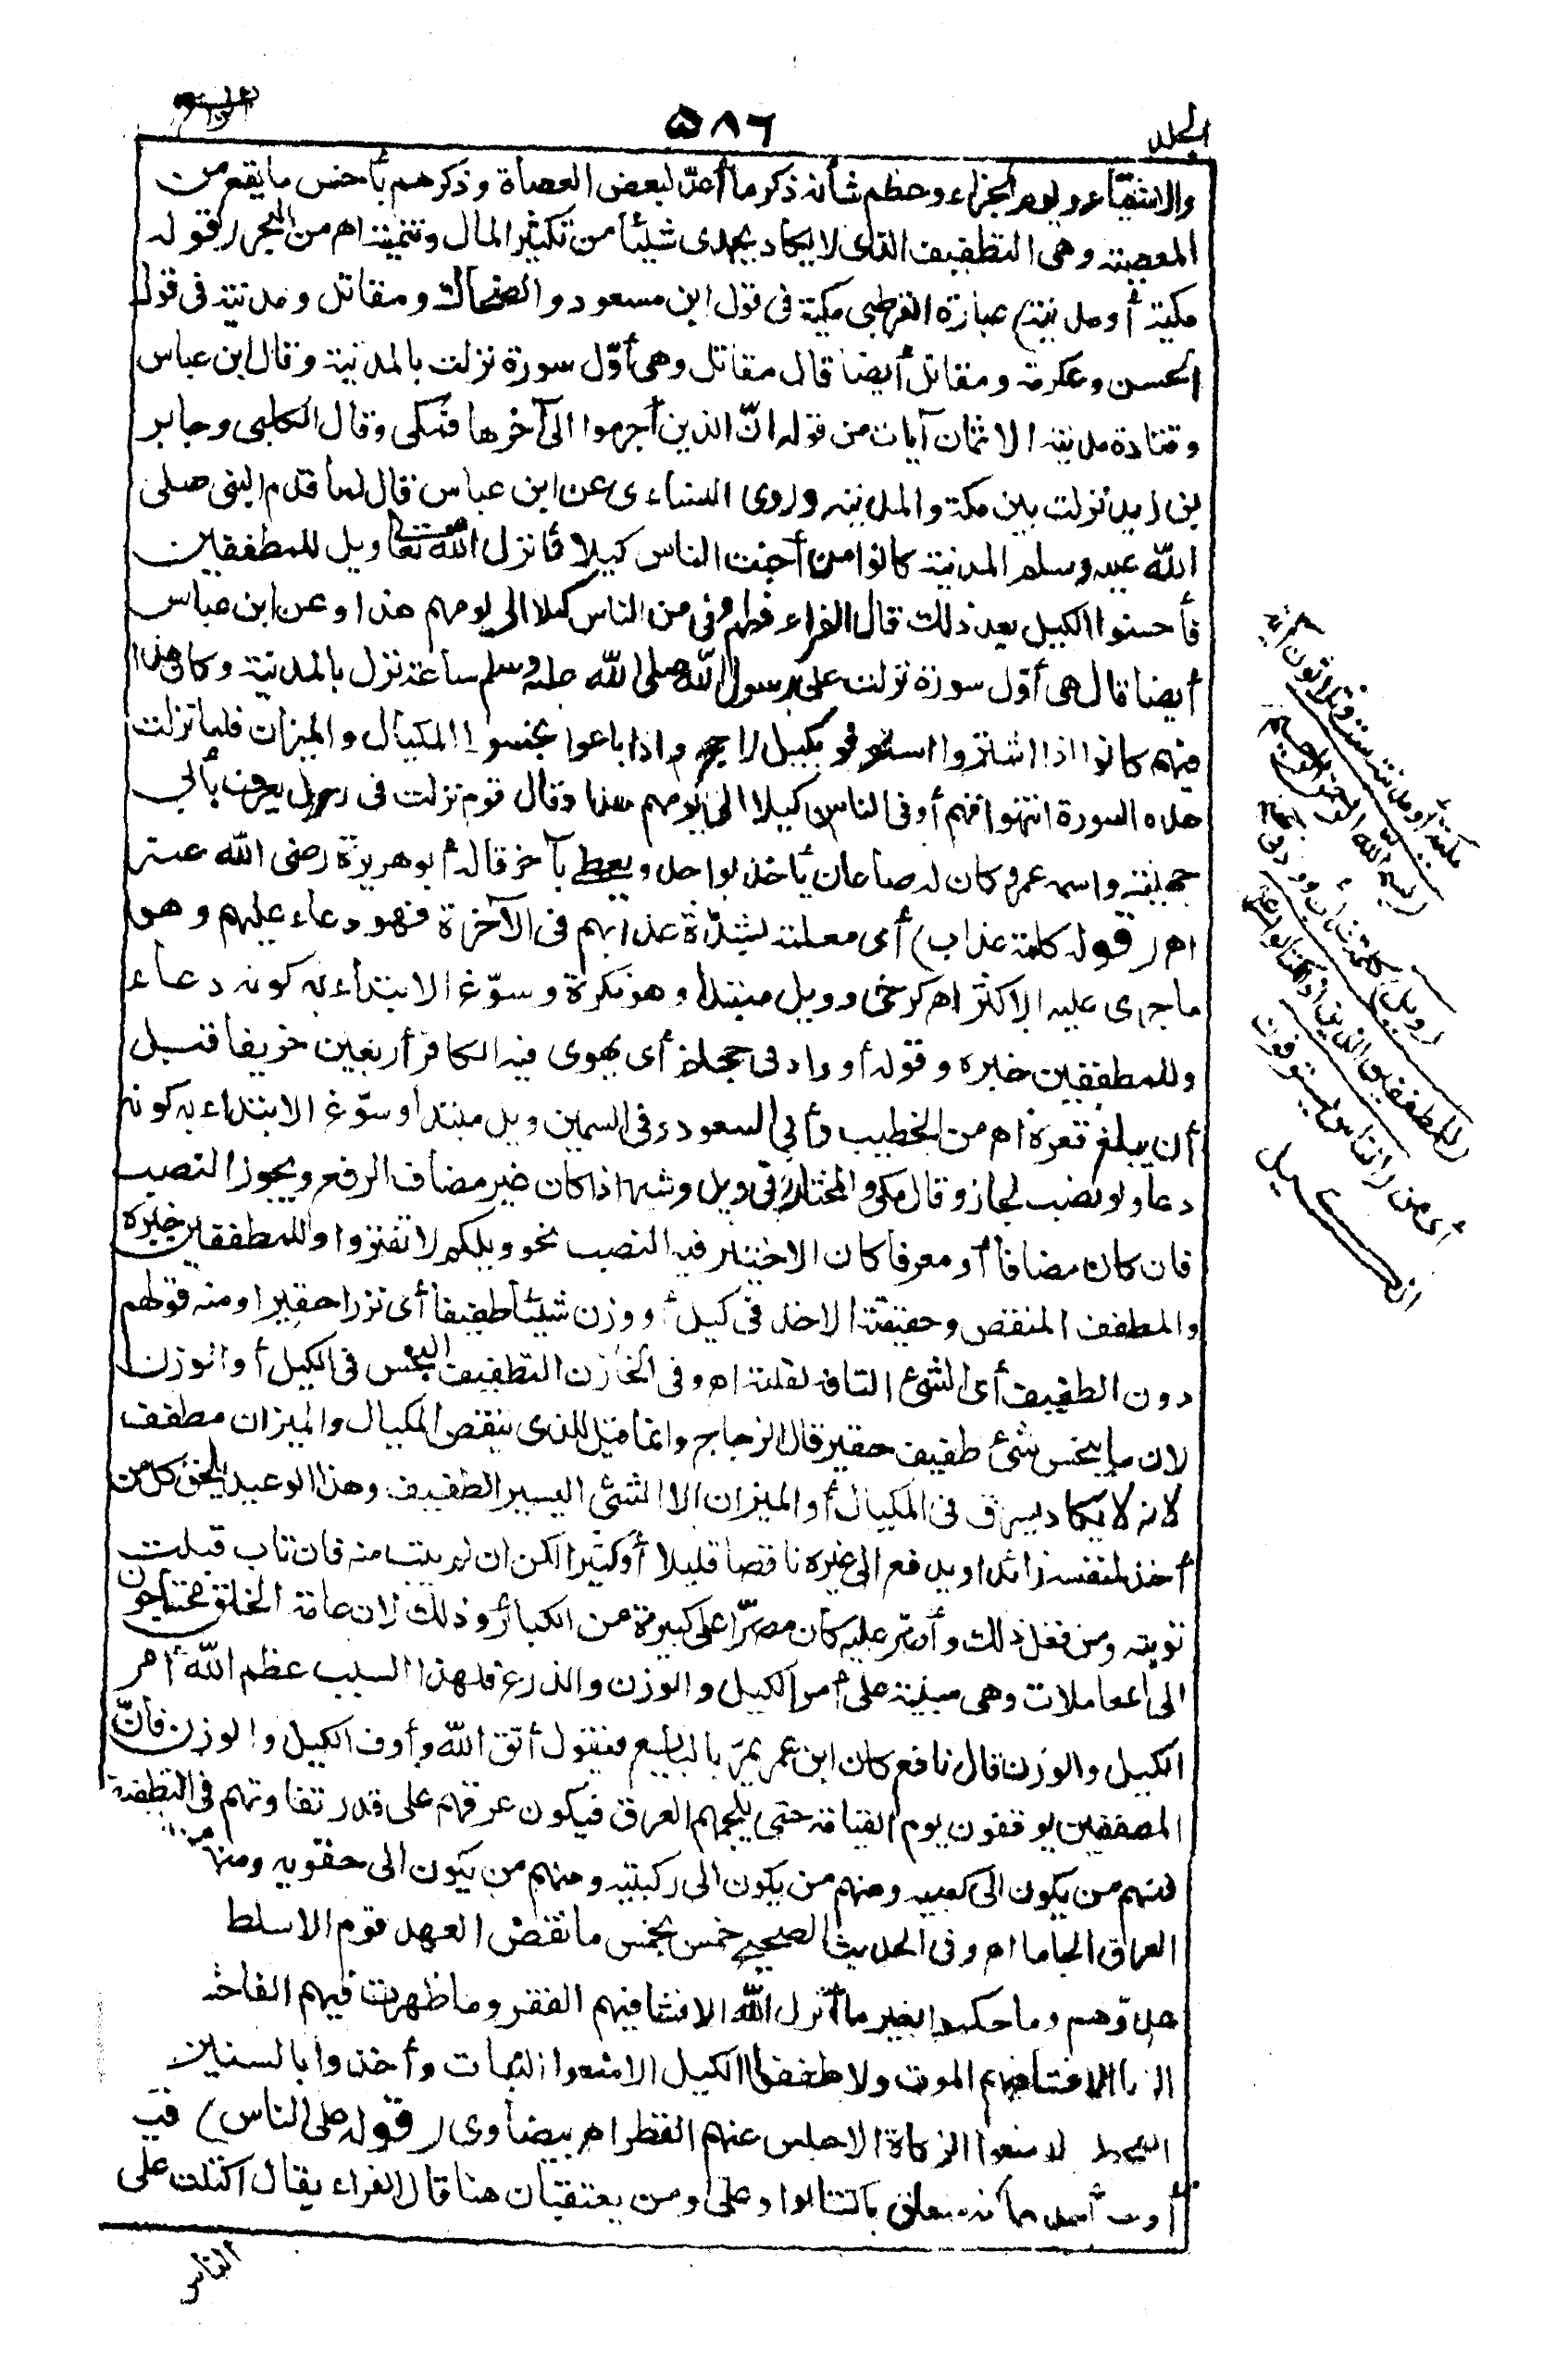 الجلد
٥٨٦
الرابع
والاشقياء ويوم الجزاء وعظم شأنه ذكر ما أعدّ لبعض العصاة وذكرهم بأخس ما يقع من
المعصية وهى التطفيف الذى لا يكاد يجدى شيئا من تكثير المال وتنميته اه من البحر (قوله
مكية أو مدنية) عبارة القرطبى مكية فى قول ابن مسعود والضحاك ومقاتل ومدنية فى قول
الحسن وعكرمة ومقاتل أيضا قال مقاتل وهى أوّل سورة نزلت بالمدينة وقال ابن عباس
وقتادة مدنية الا ثمان آيات من قوله انّ الذين أجرموا الى آخرها فمكى وقال الكلبى وجابر
بن زيد نزلت بين مكة والمدينة وروى النساءى عن ابن عباس قال لما قدم النبى صلى
الله عليه وسلم المدينة كانوا من أخبث الناس كيلا فأنزل الله تعالى ويل للمطففين
فأحسنوا الكيل بعد ذلك قال الفراء فهم أوفى من الناس كيلا الى يومهم هذا وعن ابن عباس
أيضا قال هى أوّل سورة نزلت على رسول الله صلى الله عليه وسلم ساعة نزل بالمدينة وكان هذا
فيهم كانوا اذا اشتروا استوفوا بكيل راجح واذا باعوا بخسوا المكيال والميزان فلما نزلت
هذه السورة انتهوا فهم أوفى الناس كيلا الى يومهم هذا وقال قوم نزلت فى رجل يعرف بأبى
جهينة واسمه عمرو كان له صاعان يأخذ بواحد ويعطى بآخر قاله أبو هريرة رضى الله عنه
اه (قوله كلمة عذاب) أى معلمة بشدّة عذابهم فى الآخرة فهو دعاء عليهم وهو
ما جرى عليه الاكثر اه كرخى وويل مبتدا وهو نكرة وسوّغ الابتداء به كونه دعاء
وللمطففين خبره وقوله أو واد فى جهنم أى يهوى فيه الكافر أربعين خريفا قبل
أن يبلغ قعره اه من الخطيب وأبى السعود وفى السمين ويل مبتدأ وسوّغ الابتداء به كونه
دعاء ولو نصب لجاز وقال مكى والمختار فى ويل وشبهه اذا كان غير مضاف الرفع ويجوز النصب
فان كان مضافا أو معرفا كان الاختيار فيه النصب نحو ويلكم لا تفتروا وللمطففين خبره
والمطفف المنقص وحقيقته الاخذ فى كيل أو وزن شيئا طفيفا أى نزرا حقيرا ومنه قولهم
دون الطفيف أى الشئ التافه لقلته اه وفى الخازن التطفيف البخس فى الكيل أو الوزن
لان ما يبخس شئ طفيف حقير قال الزجاج وانما قيل للذى ينقص المكيال والميزان مطفف
لانه لا يكاد يسرق فى المكيال أو الميزان الا الشئ اليسير الطفيف وهذا الوعيد يلحق كل من
أخذ لنفسه زائدا ويدفع الى غيره ناقصا قليلا أو كثيرا لكن ان لم يتب منه فان تاب قبلت
توبته ومن فعل ذلك وأصرّ عليه كان مصرّا على كبيرة من الكبائر وذلك لان عامة الخلق محتاجون
الى المعاملات وهى مبنية على أمر الكيل والوزن والذرع فلهذا السبب عظم الله أمر
الكيل والوزن قال نافع كان ابن عمر يمرّ بالبائع فيقول أتق الله وأوف الكيل والوزن فانّ
المطففين يوقفون يوم القيامة حتى يلجمهم العرق فيكون عرقهم على قدر تفاوتهم فى التطفيف
فمنهم من يكون الى كعبيه ومنهم من يكون الى ركبتيه ومنهم من يكون الى حقويه ومنهم من
العراق الجاما اه وفى الحديث الصحيح خمس بخمس ما نقض العهد قوم الا سلط
عدوّهم وما حكموا بغير ما أنزل الله الا فشا فيهم الفقر وما ظهرت فيهم الفاحشة
الا فشا فيهم الموت ولا طففوا الكيل الا منعوا النبات وأخذوا بالسنين
منعوا الزكاة الا حبس عنهم القطر اه بيضاوى (قوله على الناس) فيه
أوجه أحدها أنه متعلق باكتالوا وعلى ومن يعتقبان هنا قال الفراء يقال اكتلت على
الناس
مكية أو مدنية ست وثلاثون آية
بسم الله الرحمن الرحيم
(ويل) كلمة عذاب أو واد فى جهنم
(للمطففين الذين اذا اكتالوا على)
أى من (الناس يستوفون)
الكيل